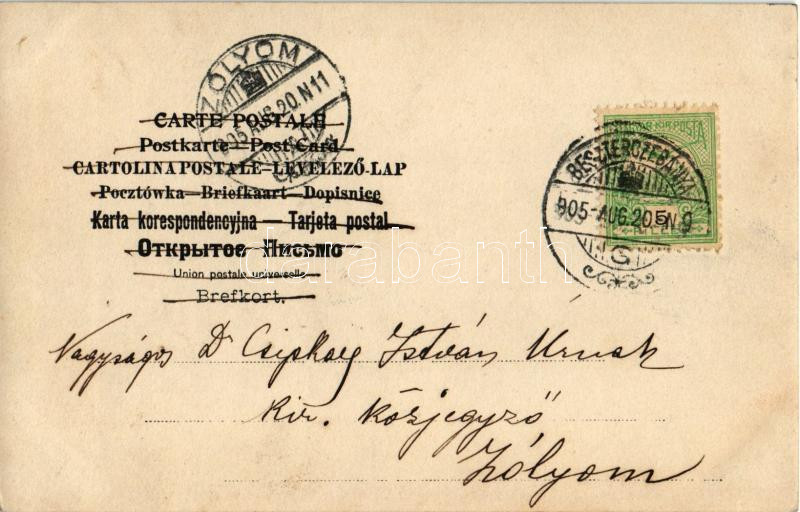 ZÓLYOM
905 AUG. 20. N 11
CARTE POSTALE
Postkarte – Post Card
CARTOLINA POSTALE – LEVELEZŐ-LAP
Pocztówka – Briefkaart – Dopisnice
Karta korespondencyjna – Tarjeta postal
Открытое Письмо
Union postale universelle
Brefkort.
MAGYAR KIR. POSTA
BESZTERCZEBÁNYA
905 AUG. 20. N 9
G
5
darabanth
Nagyságos Dr István Urnak
kir. közjegyző
Zólyom